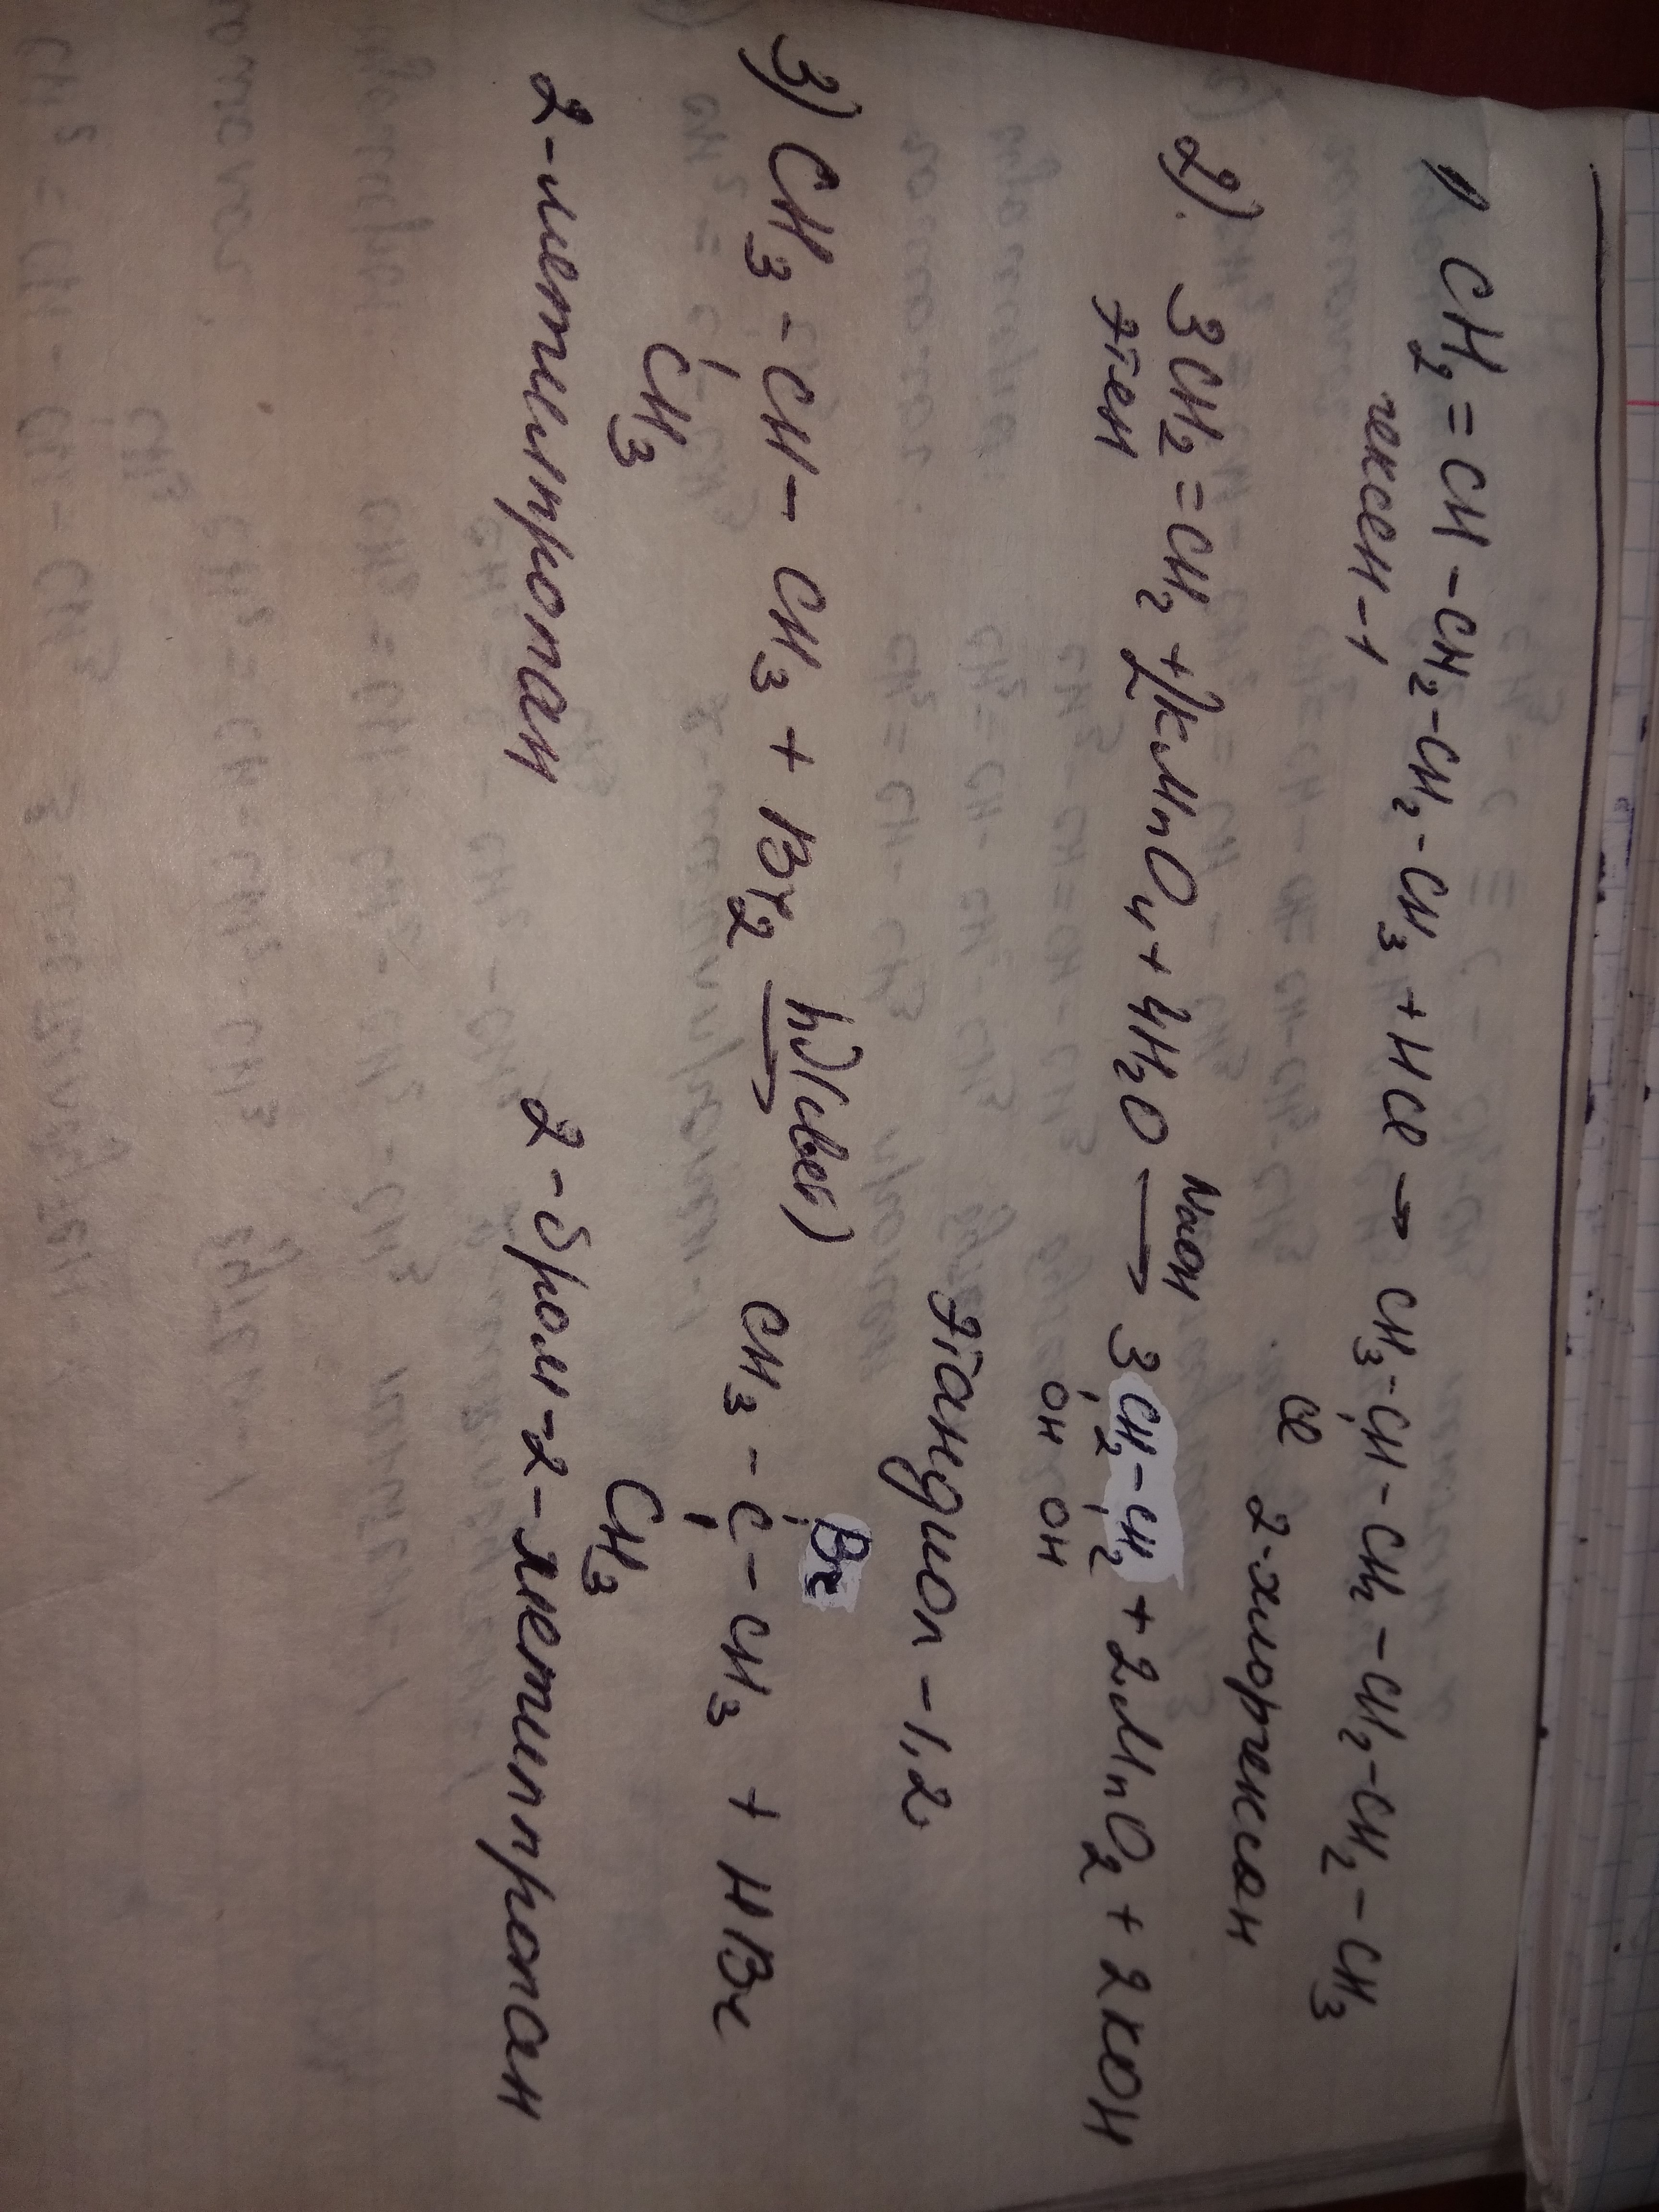 1) CH₂=CH-CH₂-CH₂-CH₃+HCl → CH₃-CH-CH₂-CH₂-CH₂-CH₃
гексен-1 Cl
2-хлоргексан
2). 3CH₂=CH₂+2KMnO₄+4H₂O NaOH→ 3CH₂-CH₂+2MnO₂+2KOH
Этен OH OH
Этандиол-1,2
3) CH₃-CH-CH₃+Br₂ hν(свет)→ CH₃-C-CH₃+HBr
Br
CH₃ CH₃
2-метилпропан 2-бром-2-метилпропан